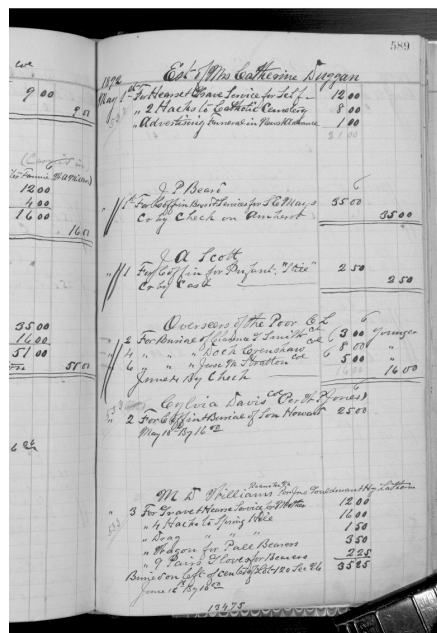 589
Est of Mrs Catherine Duggan
1892
May 1st For Hearse & Grave Service for Self 12 00
" 2 Hacks to Catholic Cemetery 8 00
" Advertising Funeral in News & Advance 1 00
21 00
J P Beard
" 1st For Coffin Box & Services for S E Mays 35 00
Cr by Check on Amherst 35 00
J A Scott
" 1 For Coffin for Infant 2 50
Cr by Cash 2 50
Overseers of the Poor
" 2 For Burial of Smith col 3 00 Younger
" 4 " " " Dock Crenshaw col 8 00 "
" 6 " " " Jesse Stratton col 5 00 "
June By Check 16 00 16 00
Sylvia Davis col Per W P Jones
" 2 For Coffin & Burial of Son Howard 25 00
May 18 By
M D Williams Roanoke Va
" 3 For Grave & Hearse Service for Mother 12 00
" 4 Hacks to Spring Hill 16 00
" Drag " " " 1 50
" Wagon for Pall Bearers 3 50
" 9 Pairs Gloves for Bearers 2 25
Buried on left of center of Lot 120 Sec 26 35 25
June 16 By
134 75
9 00
9 00
12 00
4 00
16 00
16 00
35 00
16 00
51 00